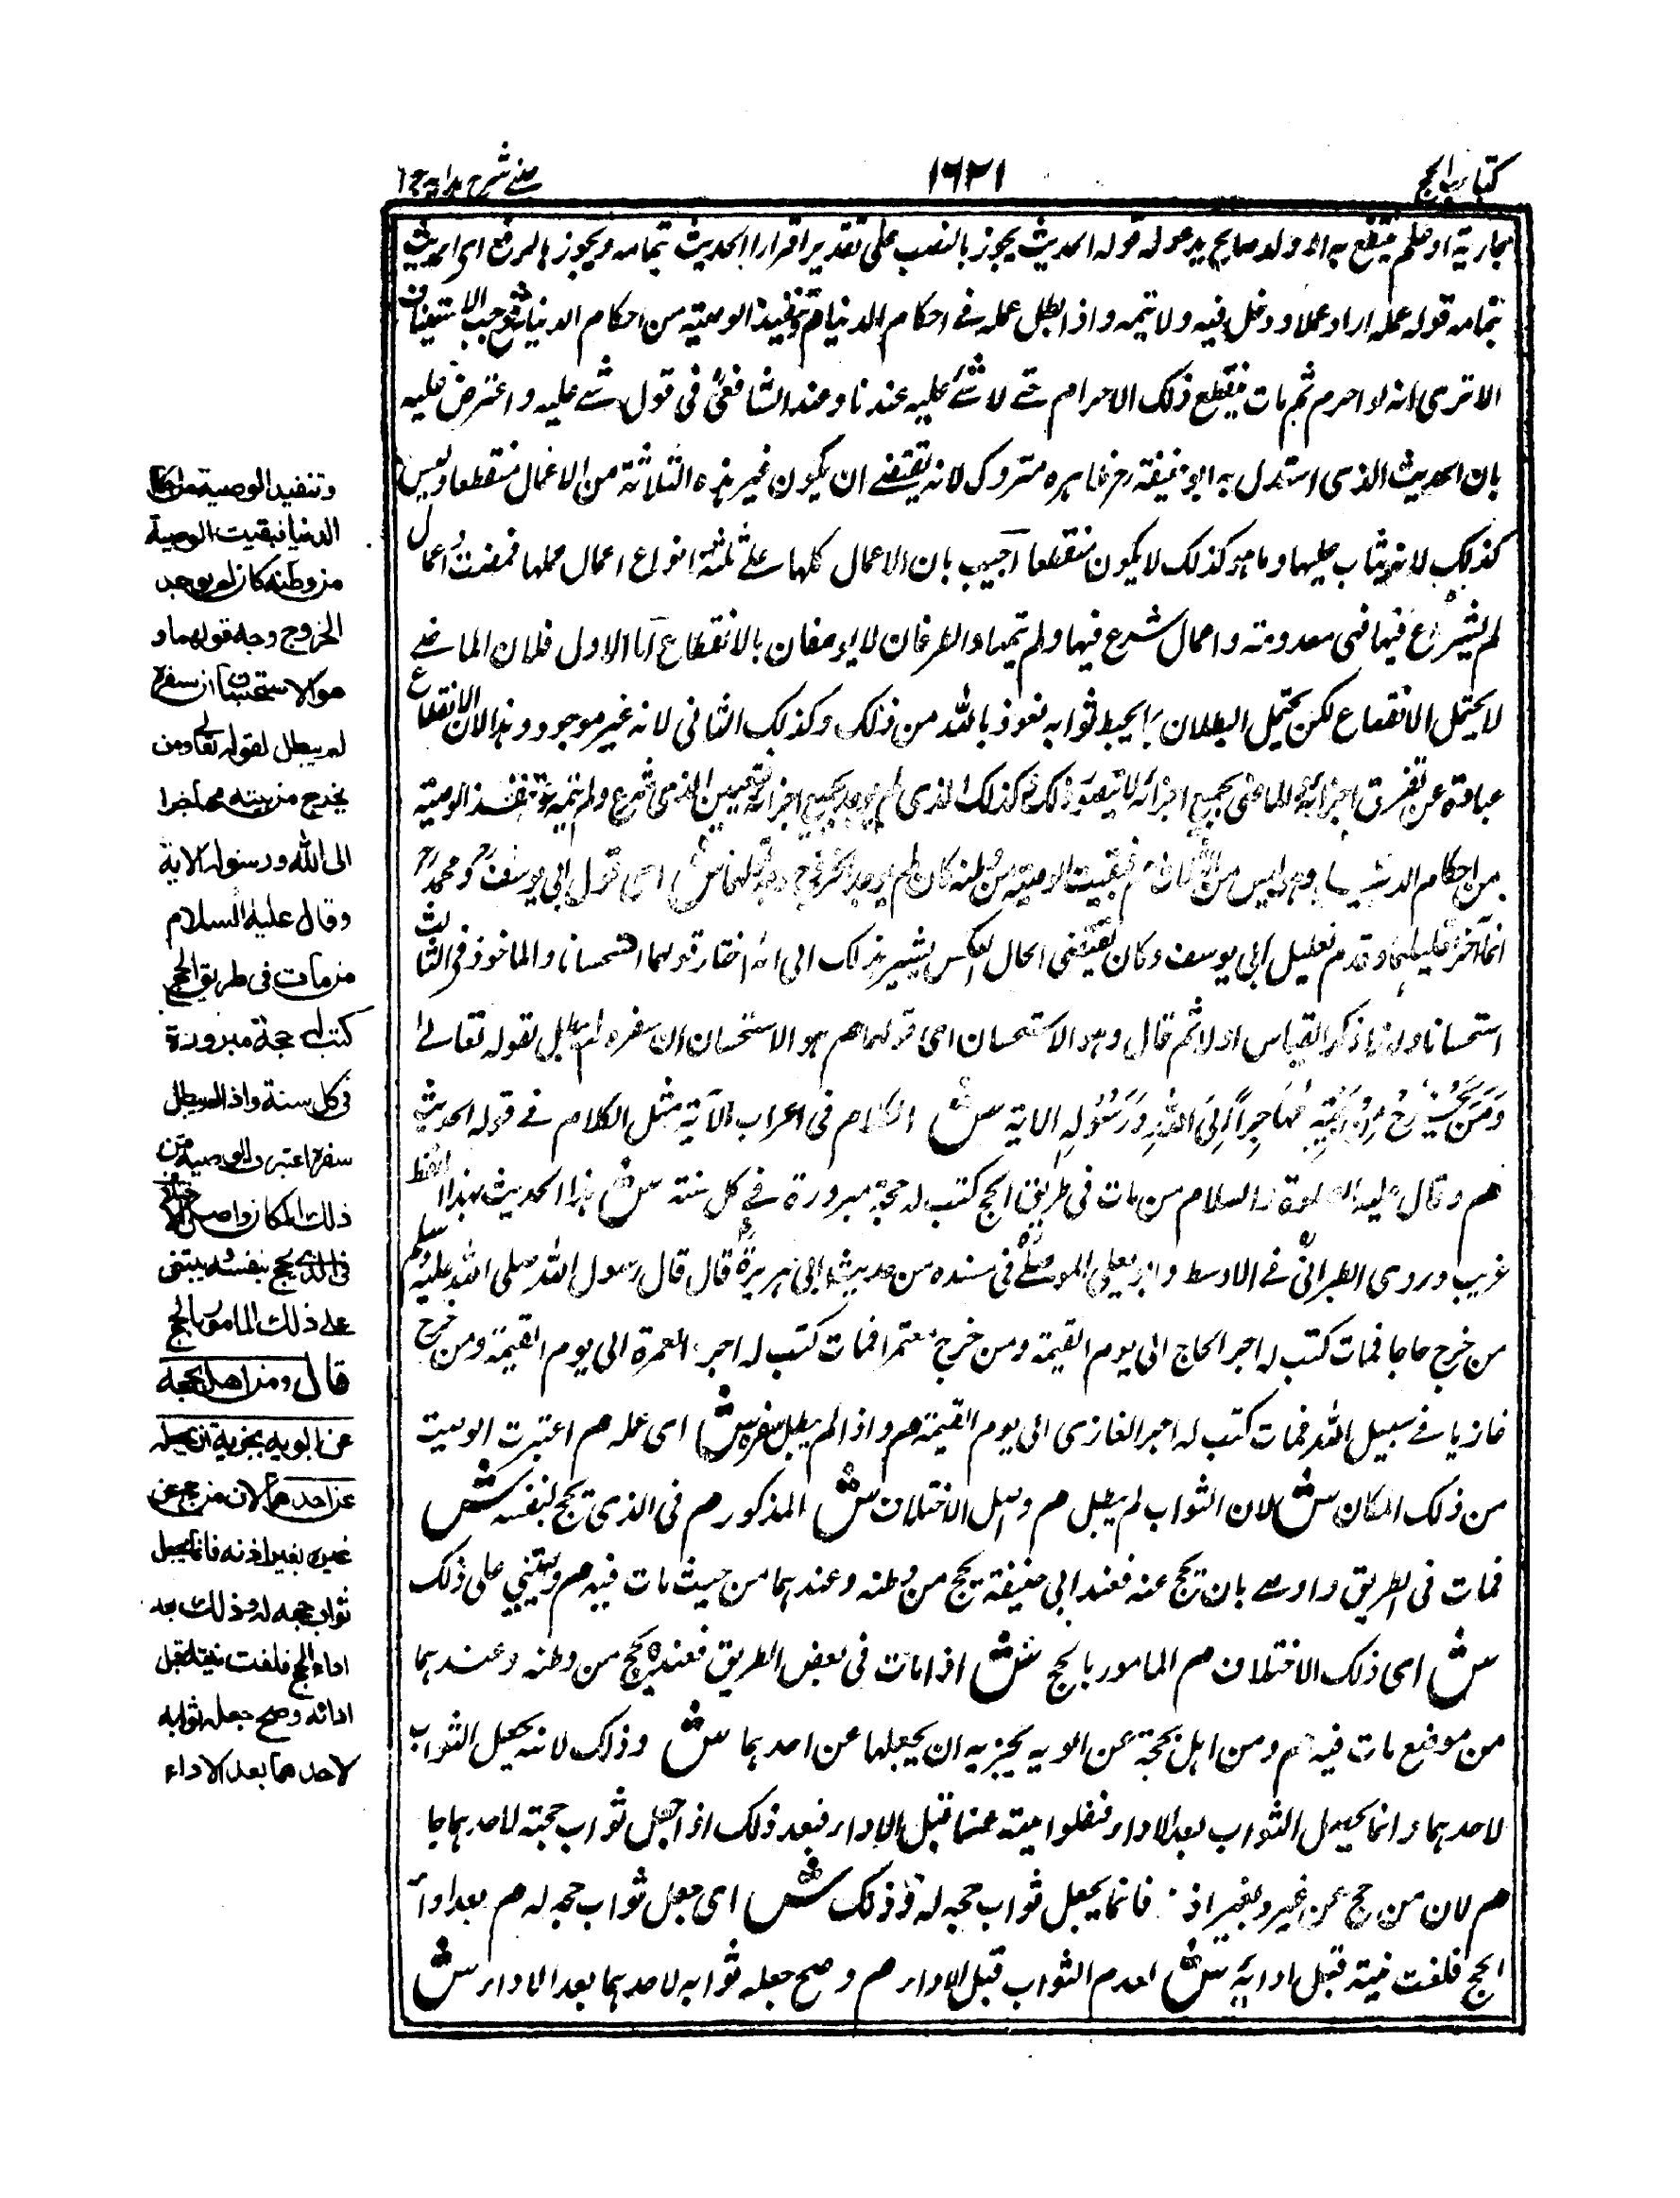 كتاب الحج
١٦٢١
عيني شرح هداية ج ١
جارية او علم ينتفع به او ولد صالح يدعو له قوله الحديث يجوز بالنصب على تقدير اقرأ الحديث بتمامه ويجوز بالرفع اى الحديث
بتمامه قوله عمله اراد عملا دخل فيه ولا تيمه واذا بطل عمله فى احكام الدنيا م وتنفيذ الوصية من احكام الدنيا ش فوجب الاستيناف
الا ترى انه لو احرم ثم مات ينقطع ذلك الاحرام حتى لا شئ عليه عندنا وعند الشافعى فى قول شئ عليه واعترض عليه
بان الحديث الذى استدل به ابو حنيفة رح ظاهره متروك لانه يقتضى ان يكون غير هذه الثلاثة من الاعمال منقطعا وليس
كذلك لانه يثاب عليها وما هو كذلك لا يكون منقطعا اجيب بان الاعمال كلها على ثلثة انواع اعمال عملها فمضت واعمال
لم يشرع فيها فهى معدومة واعمال شرع فيها ولم تيمها والطرفان لا يوصفان بالانقطاع اما الاول فلان الماضى
لا يحتمل الانقطاع لكن يحتمل البطلان بما يحبط ثوابه نعوذ بالله من ذلك وكذلك الثانى لانه غير موجود وهذا لان الانقطاع
عبارة عن تفرق اجزائه والماضى بجميع اجزائه لا يتصور ذلك وكذلك الذى لم يوجد بجميع اجزائه فتعين الذى شرع ولم تيمه م وتنفيذ الوصية
من احكام الدنيا وهو ليس من الثلاث م فبقيت الوصية من وطنه كان لم يوجد الخروج وجه قولهما ش اى قول ابى يوسف رح ومحمد رح
انما اخر تعليلهما وقدم تعليل ابى يوسف وكان يقتضى الحال العكس يشير بذلك الى انه اختار قولهما استحسانا والماخوذ فى الثالث
استحسانا ولهذا ذكر القياس اولا ثم قال وهو الاستحسان اى قولهما م هو الاستحسان ان سفره لم يبطل لقوله تعالى
وَمَنْ يَخْرُجْ مِنْ بَيْتِهِ مُهَاجِراً اِلَى اللهِ وَرَسُوْلِهِ الاية ش الكلام فى اعراب الآية مثل الكلام فى قوله الحديث
م وقال عليه الصلوة والسلام من مات فى طريق الحج كتب له حجة مبرورة فى كل سنة ش هذا الحديث بهذا اللفظ
غريب وروى الطبرانى فى الاوسط وابو يعلى الموصلى فى مسنده من حديث ابى هريرة قال قال رسول الله صلى الله عليه وسلم
من خرج حاجا فمات كتب له اجر الحاج الى يوم القيمة ومن خرج معتمرا فمات كتب له اجر العمرة الى يوم القيمة ومن خرج
غازيا فى سبيل الله فمات كتب له اجر الغازى الى يوم القيمة م واذا لم يبطل سفره ش اى عمله م اعتبرت الوصية
من ذلك المكان ش لان الثواب لم يبطل م واصل الاختلاف ش المذكور م فى الذى يحج بنفسه ش
فمات فى الطريق واوصى بان يحج عنه فعند ابى حنيفة يحج من وطنه وعندهما من حيث مات فيه م ويبتنى على ذلك
ش اى ذلك الاختلاف م المامور بالحج ش اذا مات فى بعض الطريق فعنده يحج من وطنه وعندهما
من موضع مات فيه م ومن اهل بحجة عن ابويه يجزيه ان يجعلها عن احدهما ش وذلك لانه يجعل الثواب
لاحدهما وانما يحصل الثواب بعد الاداء فبعد ذلك اذا جعل ثواب حجته لاحدهما جا
م لان من حج عن غيره بغير اذنه فانما يجعل ثواب حجه له وذلك ش اى جعل ثواب حجه له م بعد اداء
الحج فلغت نيته قبل ادائه ش لعدم الثواب قبل الاداء م وصح جعله ثوابه لاحدهما بعد الاداء ش
وتنفيذ الوصية من احكام
الدنيا فبقيت الوصية
من وطنه كان لم يوجد
الخروج وجه قولهما و
هو الاستحسان ان سفره
لم يبطل لقوله تعالى ومن
يخرج من بيته مهاجرا
الى الله ورسوله الاية
وقال عليه السلام
من مات فى طريق الحج
كتب له حجة مبرورة
فى كل سنة واذا لم يبطل
سفره اعتبرت الوصية من
ذلك المكان واصل الاختلاف
فى الذى يحج بنفسه يبتنى
على ذلك المامور بالحج
قال ومن اهل بحجة
عن ابويه يجزيه ان يجعله
عن احدهما لان من حج عن
غيره بغير اذنه فانما يجعل
ثواب حجه له وذلك بعد
اداء الحج فلغت نيته قبل
ادائه وصح جعله ثوابه
لاحدهما بعد الاداء